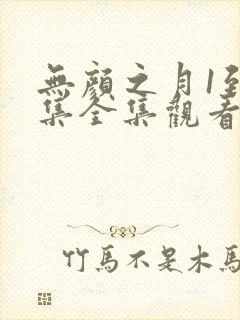 無顏之月1至
集全集觀看
竹馬不是木馬